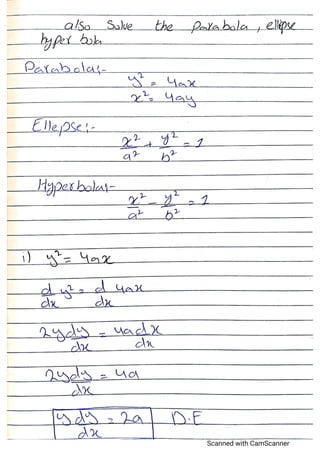 also Solve the parabola, ellipse
hyper bola
Parabola:-
y² = 4ax
x² = 4ay
Ellepse:-
x²/a² + y²/b² = 1
Hyperbola:-
x²/a² - y²/b² = 1
i) y² = 4ax
d/dx y² = d/dx 4ax
2y dy/dx = 4a dx/dx
2y dy/dx = 4a
y dy/dx = 2a D.E
Scanned with CamScanner